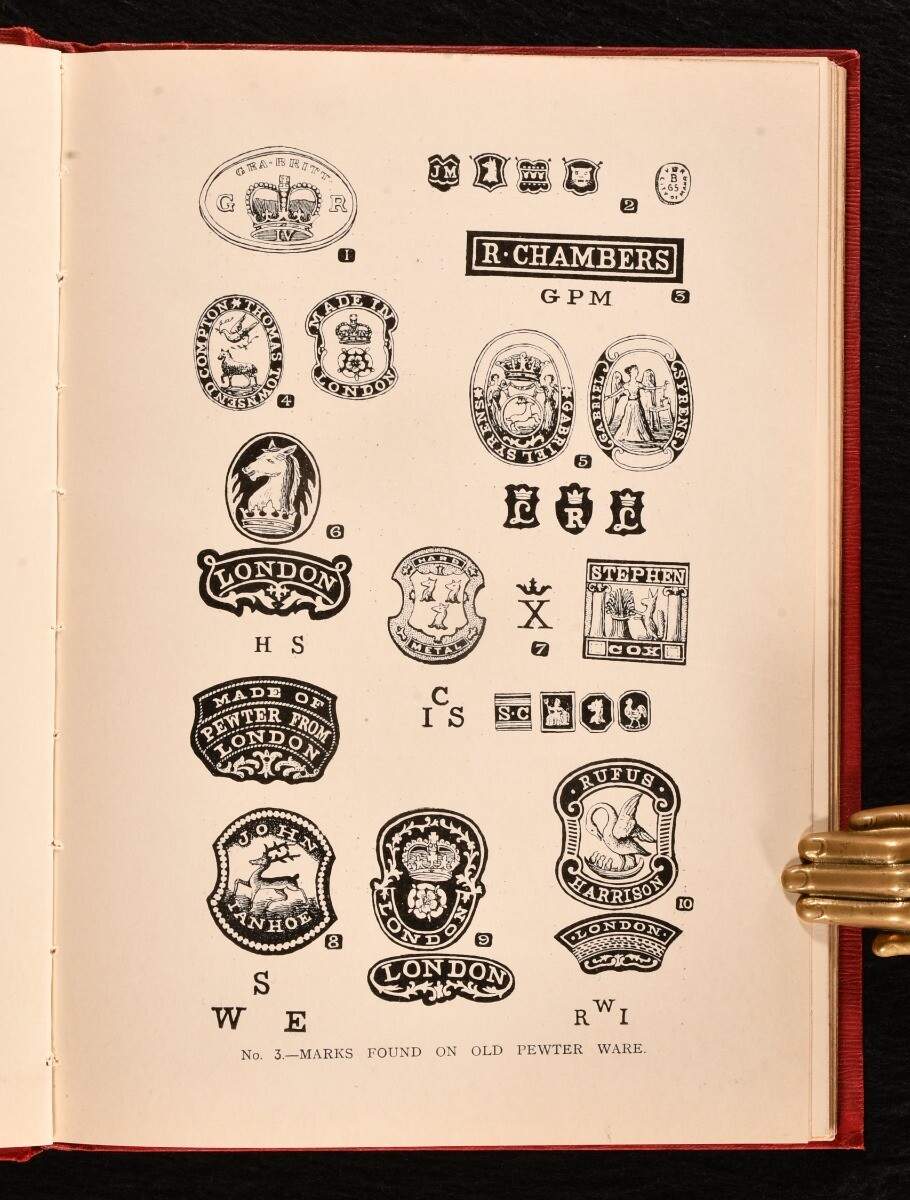 GEA·BRITT·
G R
IV
1
JM
B
65
2
R·CHAMBERS
GPM
3
COMPTON ★ THOMAS TOWNSEND
4
MADE IN
LONDON
GABRIEL SYRENS
GABRIEL SYRENS
5
L R L
6
LONDON
H S
HARD
METAL
X
7
STEPHEN
COX
C
I S
S·C
MADE OF
PEWTER FROM
LONDON
JOHN
ANHOE
8
S
W E
LONDON
9
LONDON
·RUFUS·
HARRISON
10
·LONDON·
R W I
No. 3.—MARKS FOUND ON OLD PEWTER WARE.